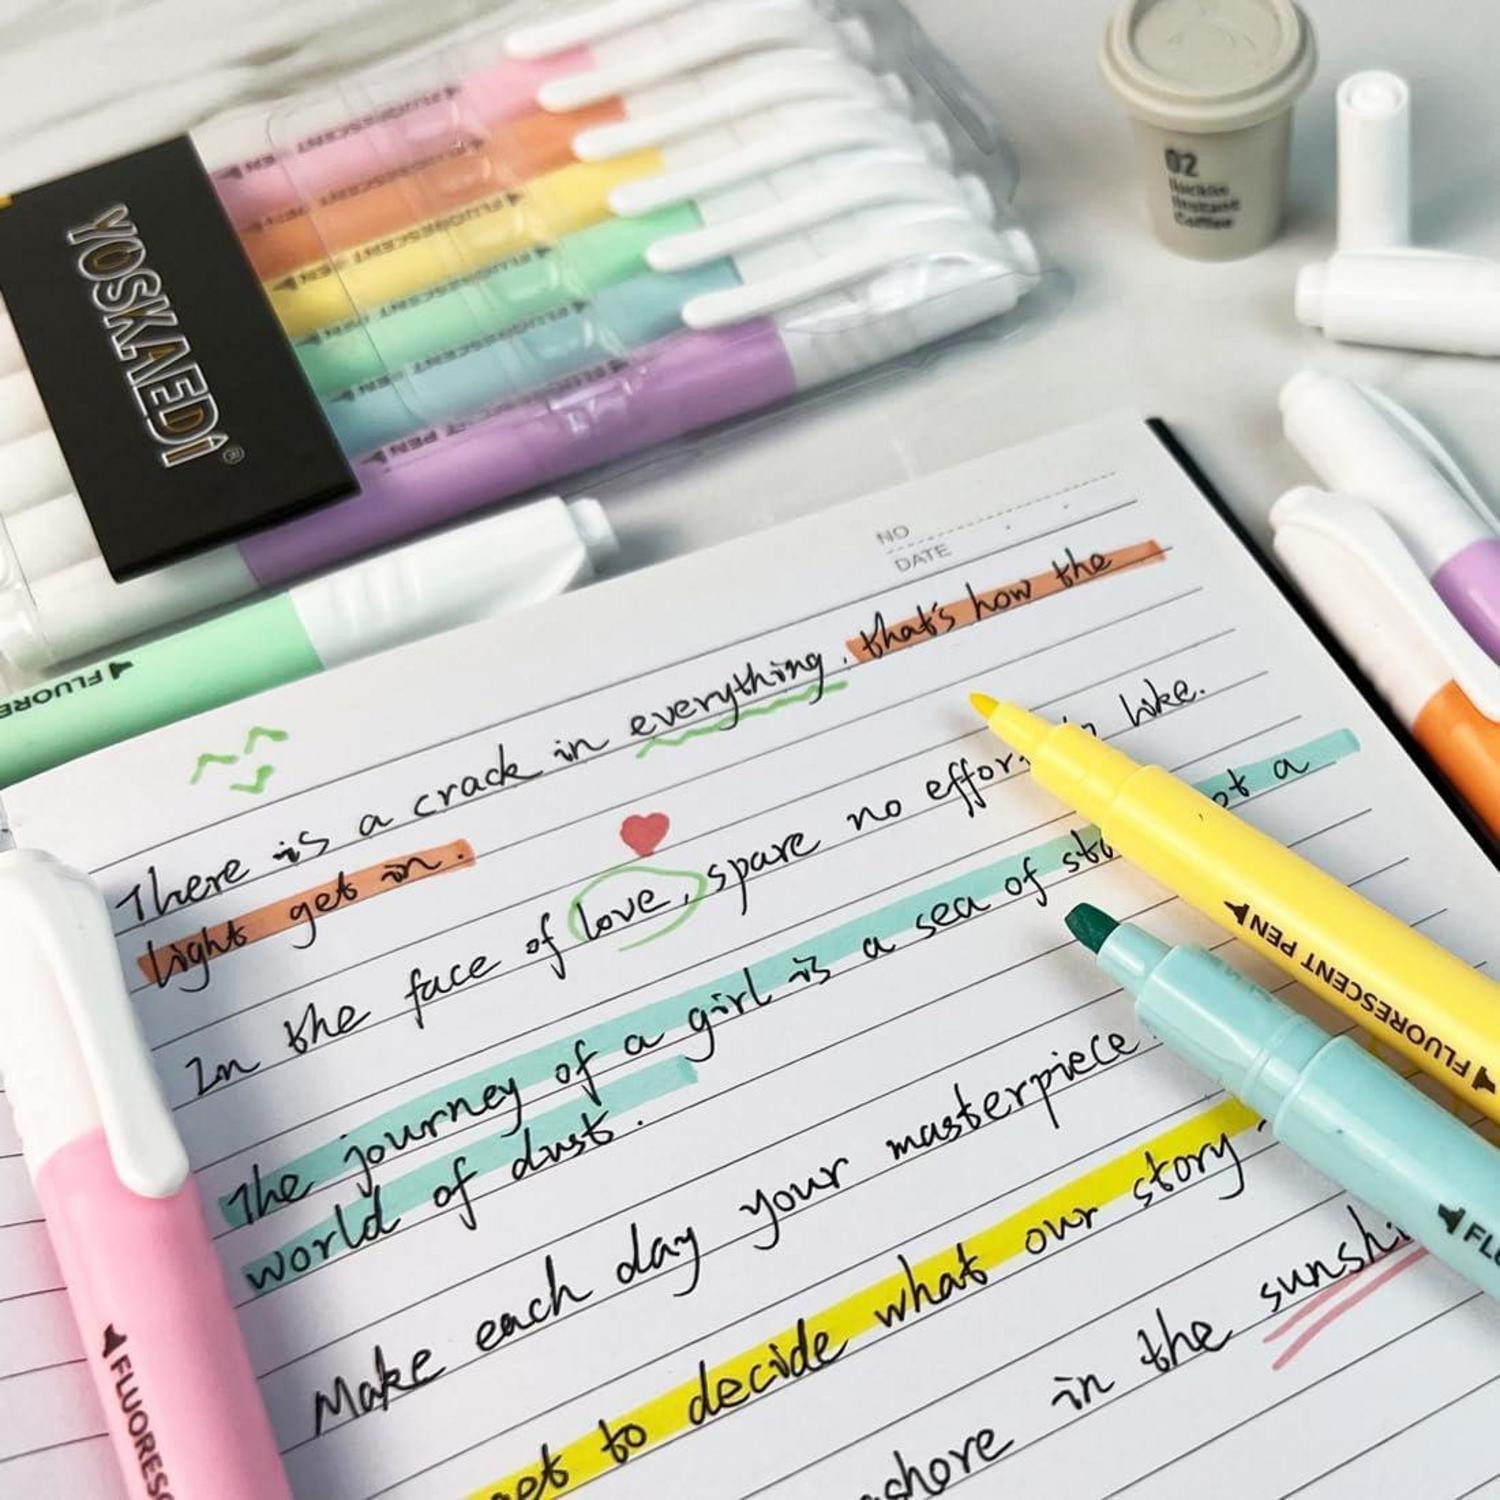 YOSKAEDI®
FLUORESCENT PEN
FLUORESCENT PEN
FLUORESCENT PEN
FLUORESCENT PEN
FLUORESCENT PEN
PEN
FLUORE
02
Coffee
NO
DATE
There is a crack in everything. that's how the
light get in.
In the face of love, spare no effor in like.
The journey of a girl is a sea of sta ot a
world of dust.
Make each day your masterpiece
get to decide what our story
shore in the sunshi
FLUORESCENT PEN
FLUO
FLUORESC